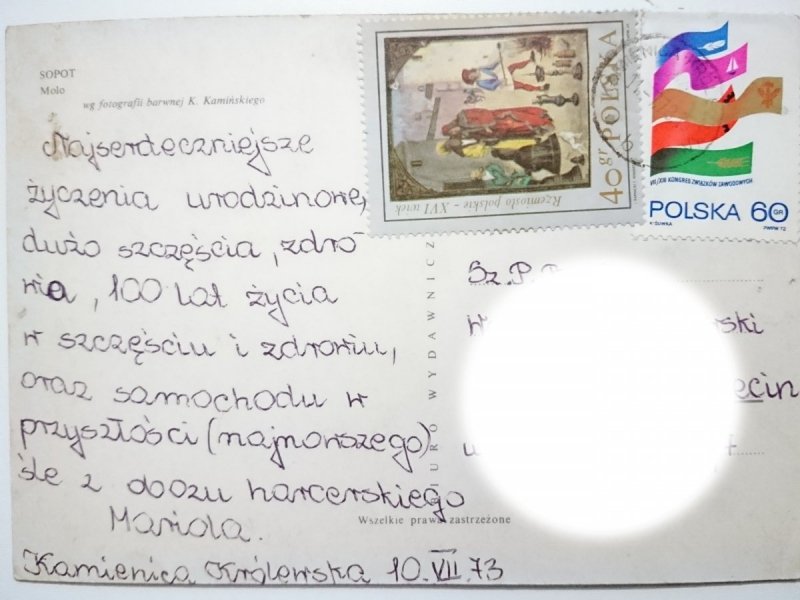 SOPOT
Molo
wg fotografii barwnej K. Kamińskiego
Najserdeczniejsze
życzenia urodzinowe,
dużo szczęścia, zdro-
wia, 100 lat życia
w szczęściu i zdrowiu,
oraz samochodu w
przyszłości (najnowszego)
śle z obozu harcerskiego
Mariola.
Kamienica Królewska 10.VII.73
BIURO WYDAWNICZ
Wszelkie prawa zastrzeżone
40 gr POLSKA
Rzemiosło polskie - XVI wiek
VII/XIII KONGRES ZWIĄZKÓW ZAWODOWYCH
POLSKA 60 GR
K. ŚLIWKA
PWPW 72
Sz. P.
ski
ecin